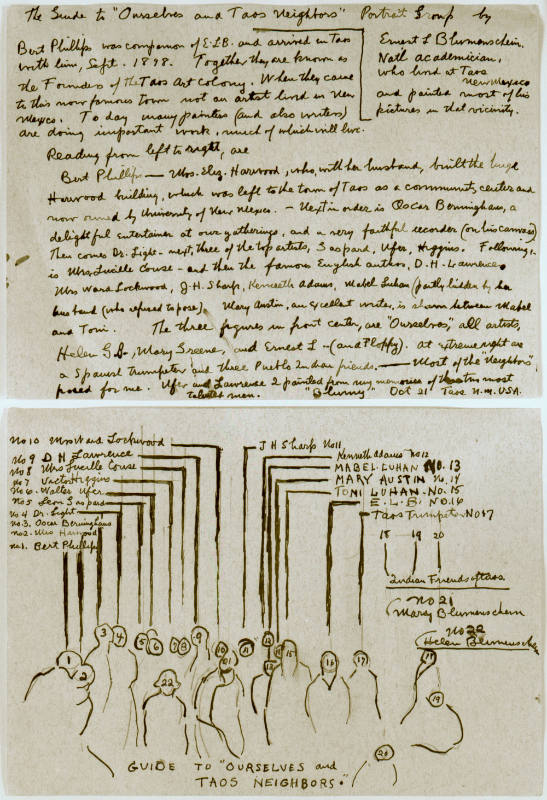 The Guide to "Ourselves and Taos Neighbors" Portrait Group by
Ernest L Blumenschein.
Natl academician,
who lived at Taos
New Mexico
and painted most of his
pictures in that vicinity.
Bert Phillips was companion of E.L.B. and arrived in Taos
with him, Sept. 1898. Together they are known as
the Founders of the Taos Art Colony. When they came
to this now famous town not an artist lived in New
Mexico. To day many painters (and also writers)
are doing important work, much of which will live.
Reading from left to right, are
Bert Phillips — Mrs. Eliz. Harwood, who, with her husband, built the huge
Harwood building, which was left to the town of Taos as a community center and
now owned by University of New Mexico. — Next in order is Oscar Berninghaus, a
delightful entertainer at our gatherings, and a very faithful recorder (on his canvases)
Then comes Dr. Light — next, three of the top artists, Gaspard, Ufer, Higgins. Following,
is Mrs. Lucille Couse — and then the famous English author, D. H. Lawrence,
Mrs Ward Lockwood, J. H. Sharp, Kenneth Adams, Mabel Luhan (partly hidden by her
husband (who refused to pose). Mary Austin, an excellent writer, is shown between Mabel
and Toni. The three figures in front center, are "Ourselves," all artists,
Helen G. B., Mary Greene, and Ernest L — (and Floppy). At extreme right are
a Spanish trumpeter and three Pueblo Indian friends. — Most of the "Neighbors"
posed for me. Ufer and Lawrence I painted from my memories of most
talented men. "Blumy" Oct 21 Taos N.M. USA.
No 10 Mrs Ward Lockwood
No 9 D H Lawrence
No 8 Mrs Lucille Couse
No 7 Victor Higgins
No 6. Walter Ufer
No 5 Leon Gaspard
No 4 Dr. Light
No. 3. Oscar Berninghaus
No 2. Mrs Harwood
No 1. Bert Phillips
J H Sharp No 11
Kenneth Adams No 12
MABEL LUHAN NO. 13
MARY AUSTIN No. 14
TONI LUHAN - NO. 15
E. L. B. NO. 16
Taos Trumpeter NO 17
18 19 20
Indian Friends of Taos
No 21
Mary Blumenschein
No 22
Helen Blumenschein
1
2
3
4
5
6
7
8
9
10
11
12
13
14
15
16
17
18
19
20
21
22
GUIDE TO "OURSELVES and
TAOS NEIGHBORS."